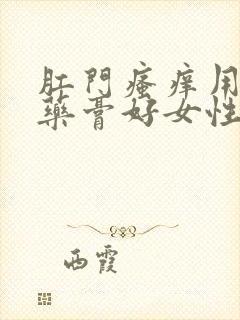 肛門瘙痒用
藥膏好女性
西霞